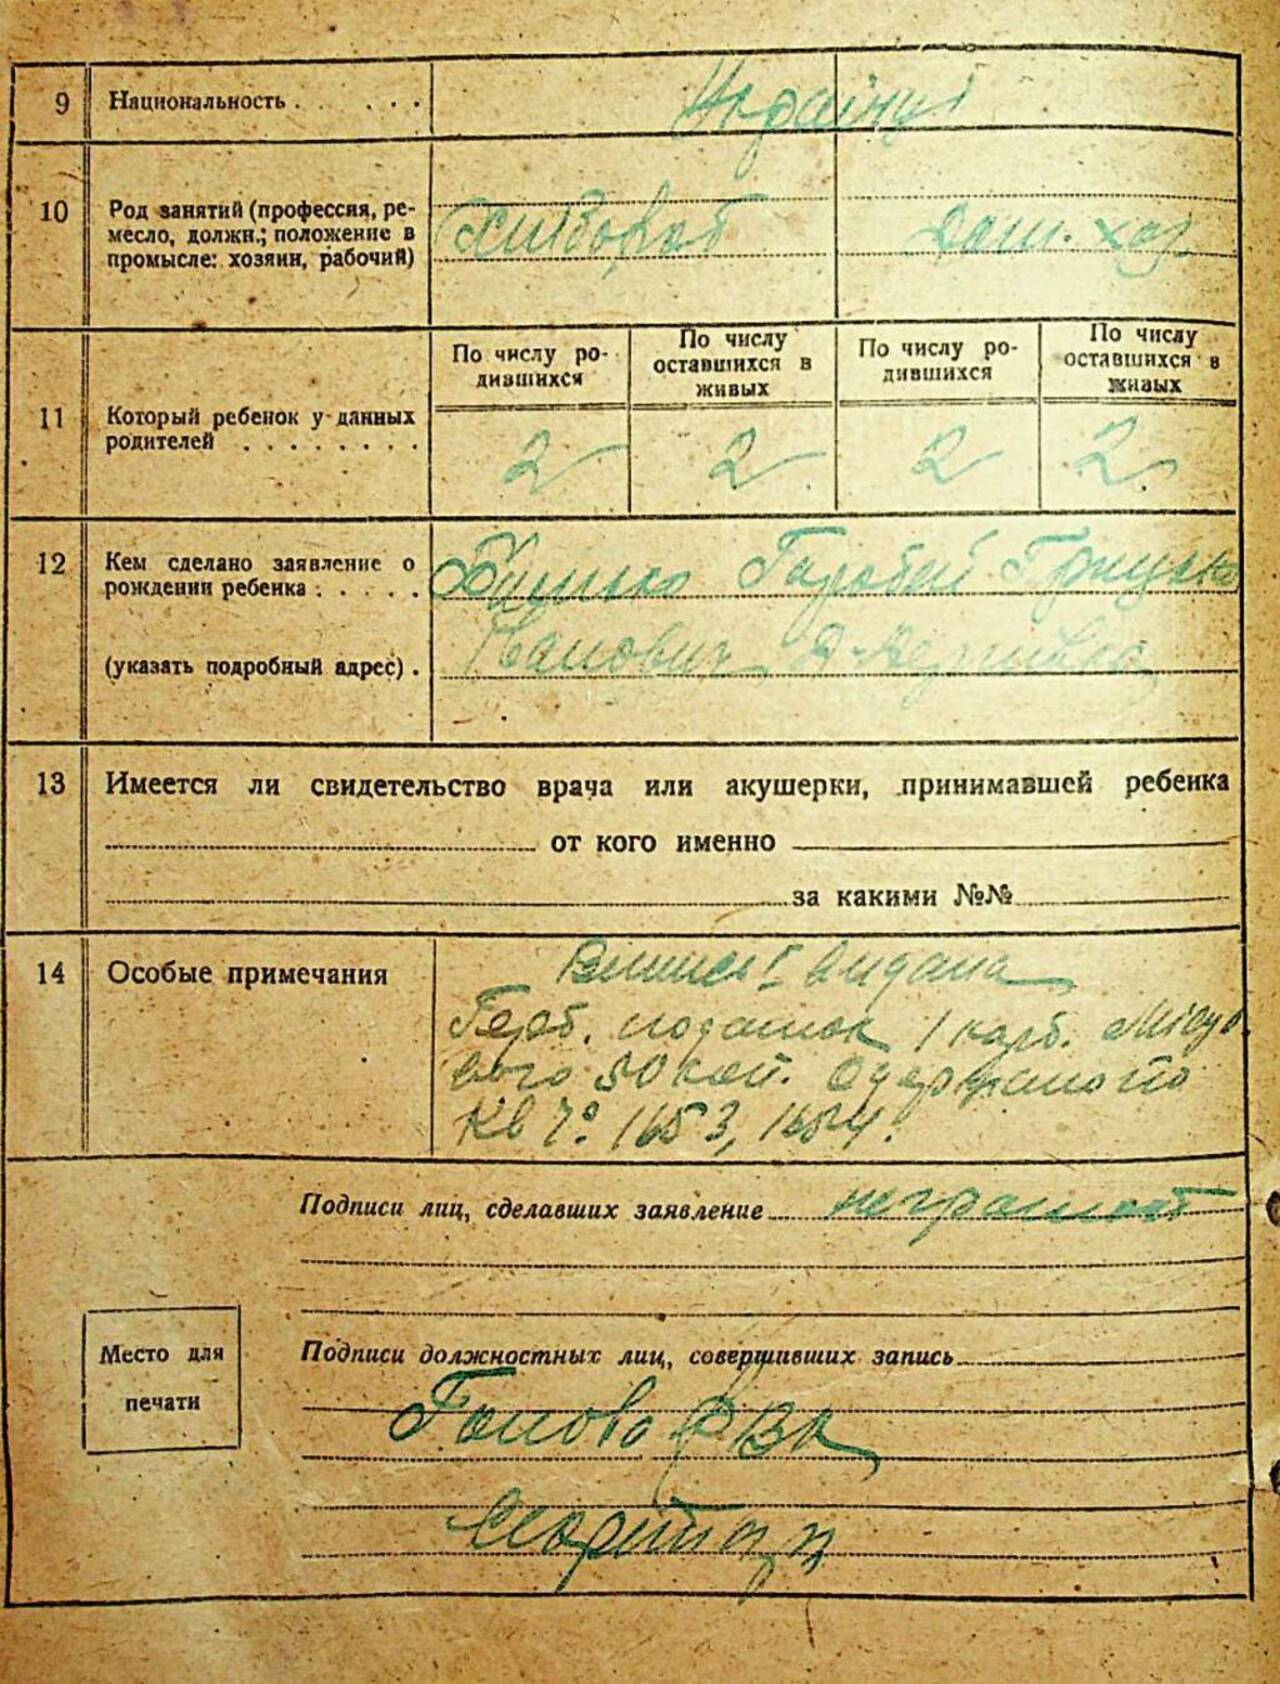 9 Национальность . . . . . Українці
10 Род занятий (профессия, ре-
месло, должн.; положение в
промысле: хозяин, рабочий)
Хлібороб Дом. хоз
По числу ро-
дившихся
По числу
оставшихся в
живых
По числу ро-
дившихся
По числу
оставшихся в
живых
11 Который ребенок у данных
родителей . . . . . . . .
2 2 2 2
12 Кем сделано заявление о
рождении ребенка . . . . .
(указать подробный адрес) .
Батько Гарбей Грицько
Іванович
13 Имеется ли свидетельство врача или акушерки, принимавшей ребенка
от кого именно
за какими №№
14 Особые примечания
Випись видана
Герб. податок 1 карб. Місц
вого 50 коп. Одержано по
Кв 1653, 1654.
Подписи лиц, сделавших заявление неграмот
Место для
печати
Подписи должностных лиц, совершивших запись
Голова
Секретар